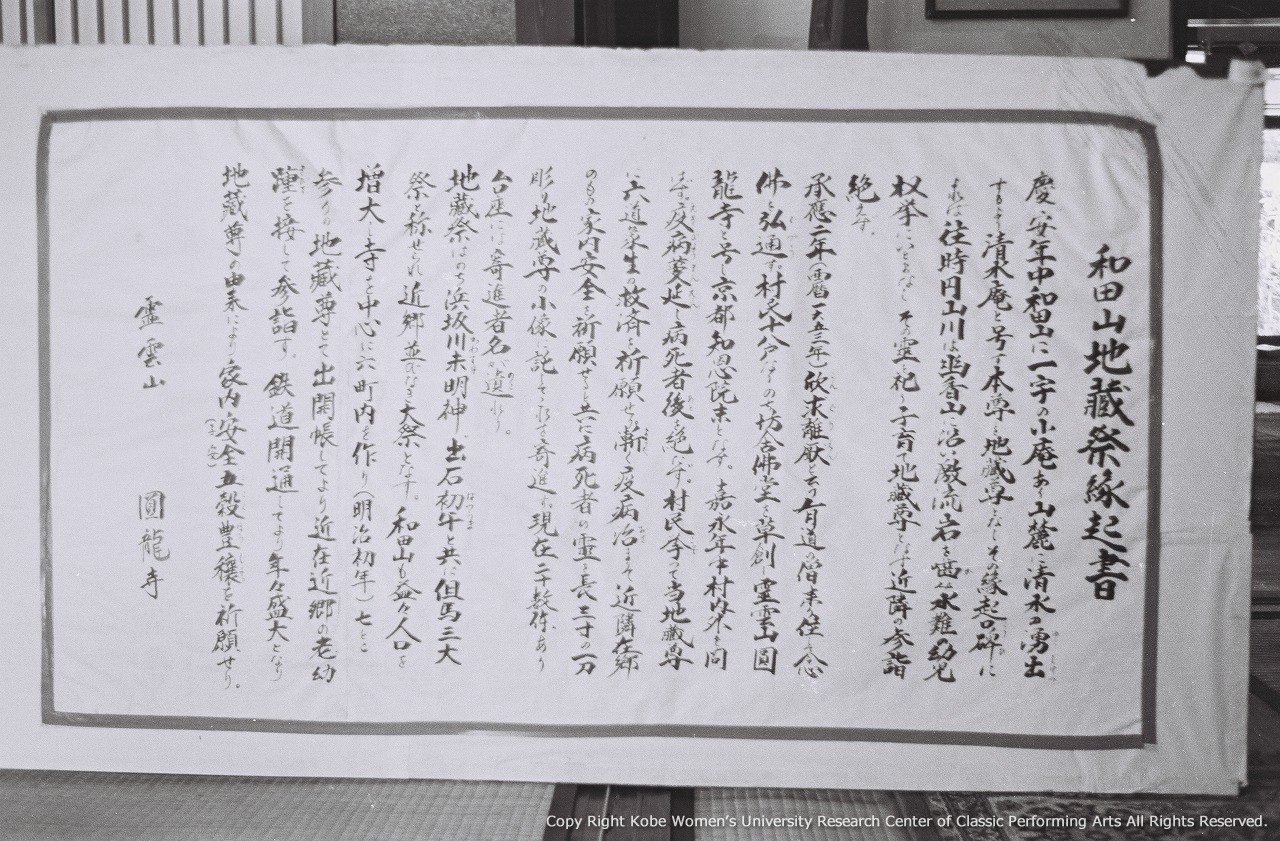 和田山地藏祭緣起書
慶安年中和田山に一宇の小庵あり山麓に清水の湧出
するより清水庵と号す本尊を地藏尊となしその縁起の碑に
よれば往時円山川は幽香山に沿い激流岩を噛み水難の幼児
枚挙にいとまなしその霊を祀り子育て地藏尊となす近隣の参詣
絶えず。
承應二年(西暦一六五三年)欣求離厭と云う旨道の僧来り住して念
佛を弘通す村民十八戸なりその坊舎佛堂を草創し霊雲山圓
龍寺と号し京都知恩院末となす。嘉永年中村内外を問
はず疫病蔓延し病死者後を絶たず。村民挙って当地藏尊
に六道衆生の救済を祈願せば漸く疫病治まる近隣在郷
のもの家内安全を祈願せると共に病死者の霊を長三寸の一刀
彫り地藏尊の小像に託してこれを寄進す現在二千数体あり
台座には寄進者名が遺れり。
地藏祭はのち浜坂川末明神、出石初午と共に但馬三大
祭と称せられ近郷並びなき大祭となす。和田山も益々人口を
増大し寺を中心に六町内を作り(明治初年)七とこ
参りの地藏尊として出開帳してより近在近郷の老幼
踵を接して参詣す。鉄道開通してより年々盛大となり
地藏尊の由来により家内安全五穀豊穣を祈願せり。
霊雲山 圓龍寺
Copy Right Kobe Women's University Research Center of Classic Performing Arts All Rights Reserved.